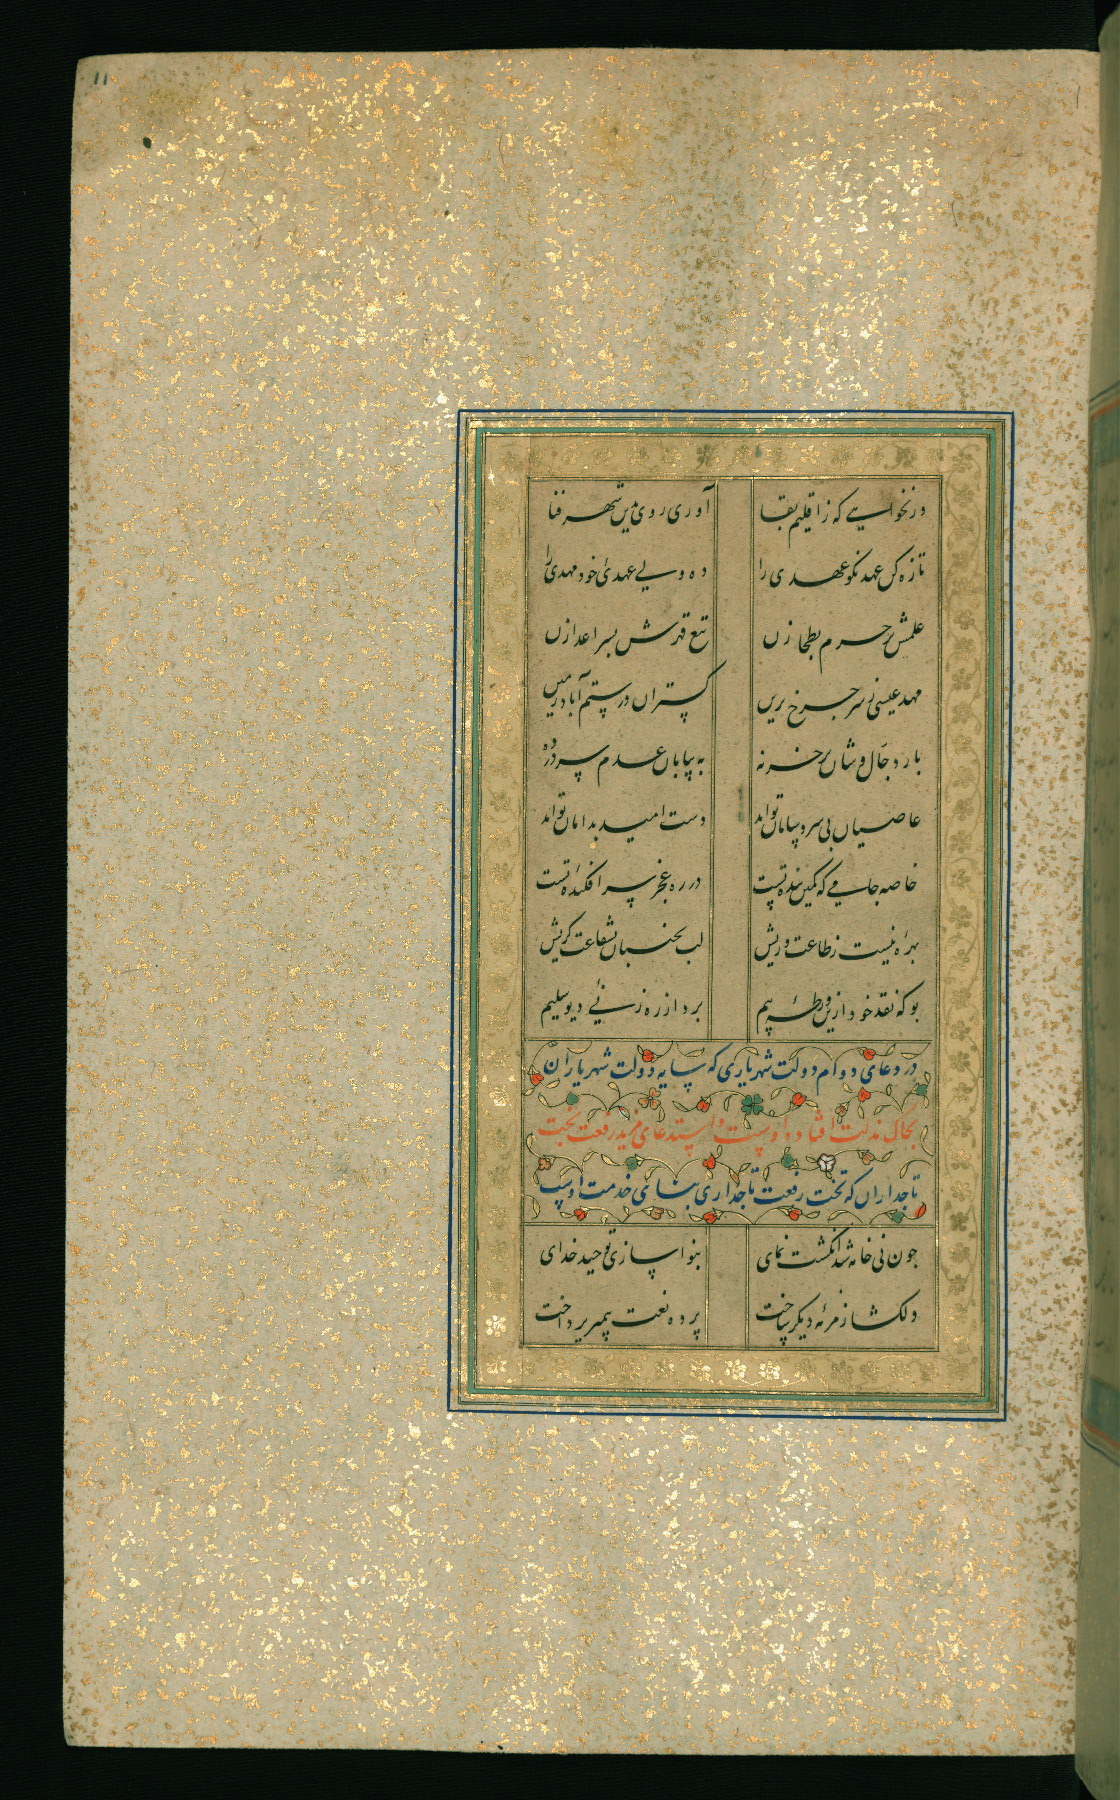 ۱۱
ور نخواهی که ز اقلیم بقا آوری روی بدین شهر فنا
تازه کن عهد نکو عهدی را ده ولی عهدئ خود مهدی را
علمش بر حرم بطحا زن تیغ قهرش بسر اعدا زن
مهد عیسی ز سر چرخ برین گستران در ستم آباد زمین
بار دجال وشان بر خر نه به بیابان عدم سر در ده
عاصیان بی سر و سامان تواند دست امید بدامان تواند
خاصه جامی که کمین بنده تست در ره عجز سر افکنده تست
بهرهٔ نیست ز طاعت وریش لب بجنبان بشفاعت گریش
بو که نقد خود ازین ورطهٔ بیم برد از ره زنئ دیو سلیم
در دعای دوام دولت شهریاری که سایه دولت شهریاران
بخاک مذلت افتاده اوست و استدعای مزید رفعت بخت
تاجداران که تخت رفعت تاجداری بنای خدمت اوست
چون نی خامه شد انگشت نمای بنوا سازی توحید خدای
دلکشا زمزمهٔ دیگر ساخت پرده نعت پیمبر پرداخت